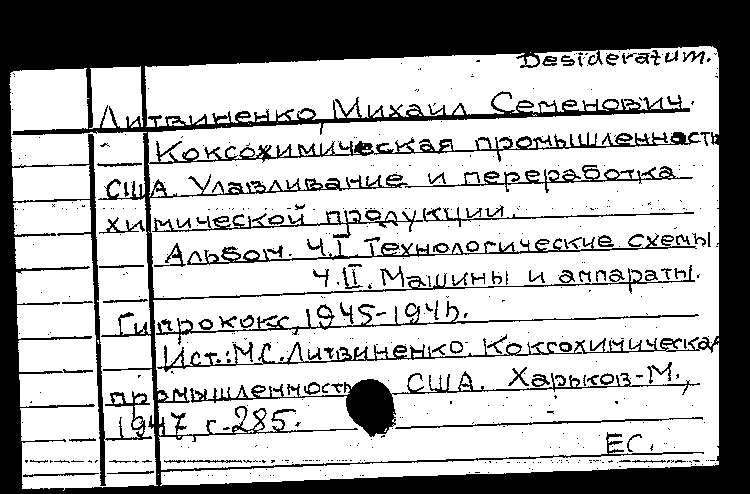 Desideratum.
Литвиненко, Михаил Семенович.
Коксохимическая промышленность
США. Улавливание и переработка
химической продукции.
Альбом. Ч.I Технологические схемы.
Ч.II. Машины и аппараты.
Гипрококс, 1945-194
Ист.: М.С. Литвиненко. Коксохимическая
промышленность США. Харьков-М.,
1947, с. 285.
ЕС.